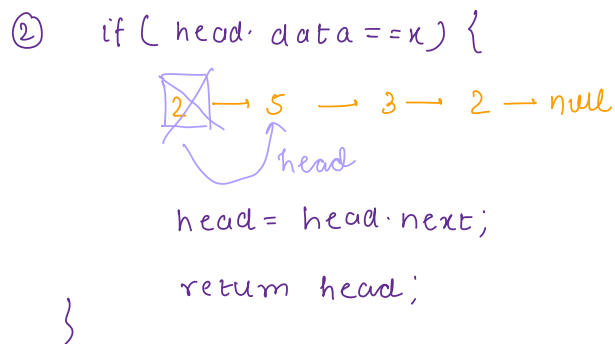 ② if ( head. data == x) {
2 → 5 — 3 — 2 — null
head
head = head.next;
return head;
}